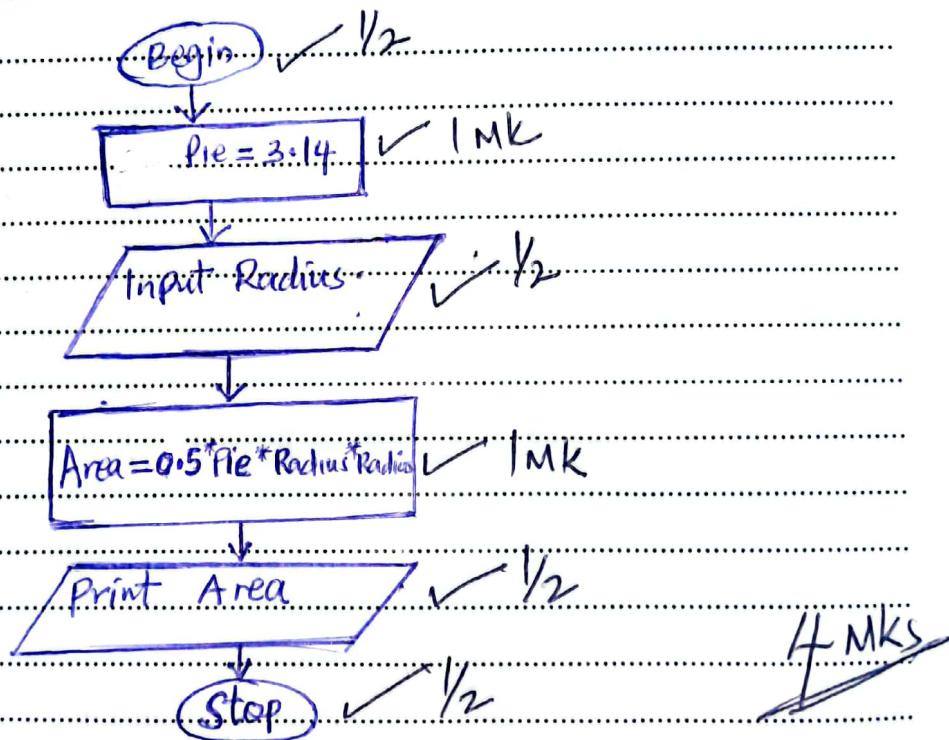 Begin ✓ 1/2
Pie = 3.14 ✓ 1 MK
Input Radius ✓ 1/2
Area = 0.5*Pie*Radius*Radius ✓ 1 MK
Print Area ✓ 1/2
4 MKS
Stop ✓ 1/2